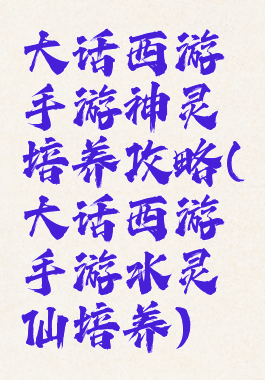 大话西游
手游神灵
培养攻略(
大话西游
手游水灵
仙培养)